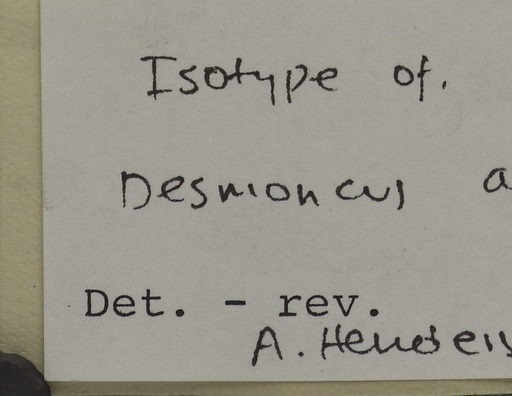 Isotype of.
Desmoncus a
Det. - rev.
A. Henders